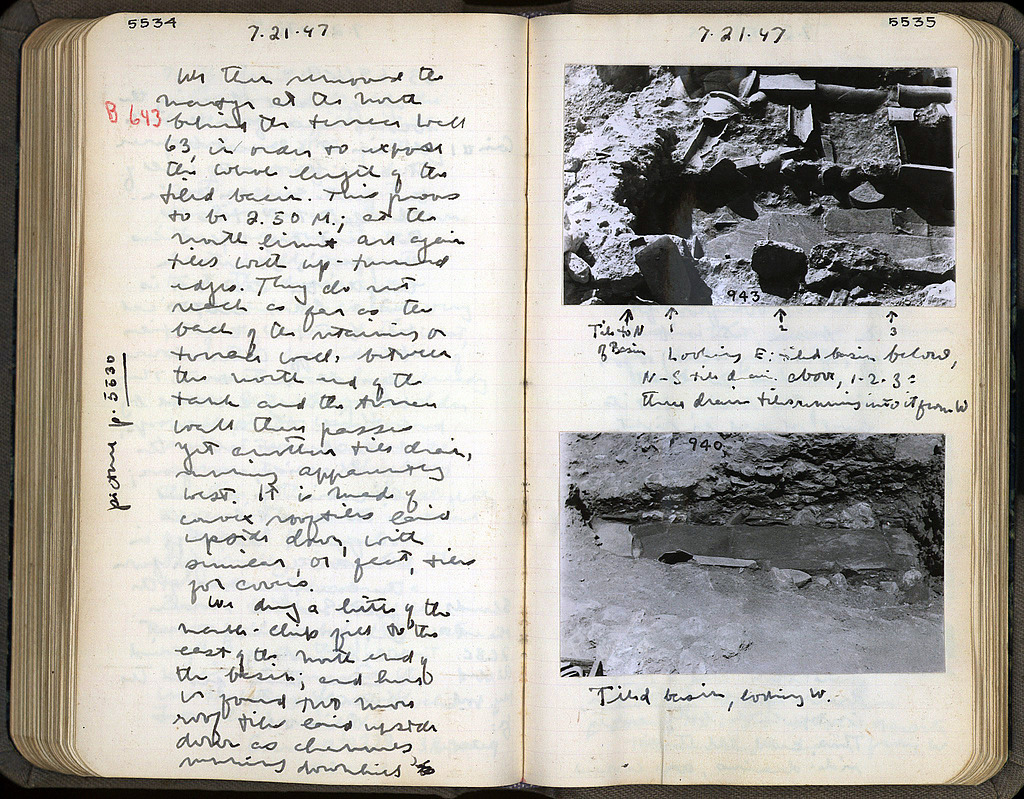 5534
7·21·47
We then removed the
martyr at the north
B 643
behind the terrace wall
63, in order to expose
the whole length of the
tiled basin. This proves
to be 2.50 M.; at the
north limit are again
tiles with up-turned
edges. They do not
reach as far as the
back of the retaining or
terrace wall; between
the north end of the
tank and the terrace
wall there passes
yet another tile drain,
running apparently
west. It is made of
convex rooftiles laid
upside down, with
similar, or flat, tiles
for covers.
picture p. 5530
We dug a little of the
marble-chip fill to the
east of the north end of
the basin; and here
we found two more
roof tiles laid upside
down as channels
running downhill
5535
7·21·47
943
Tile to N
of Basin
1
2
3
Looking E: tiled basin below,
N-S tile drain above, 1-2-3 =
three drain tiles running into it from W
940
Tiled basin, looking W.